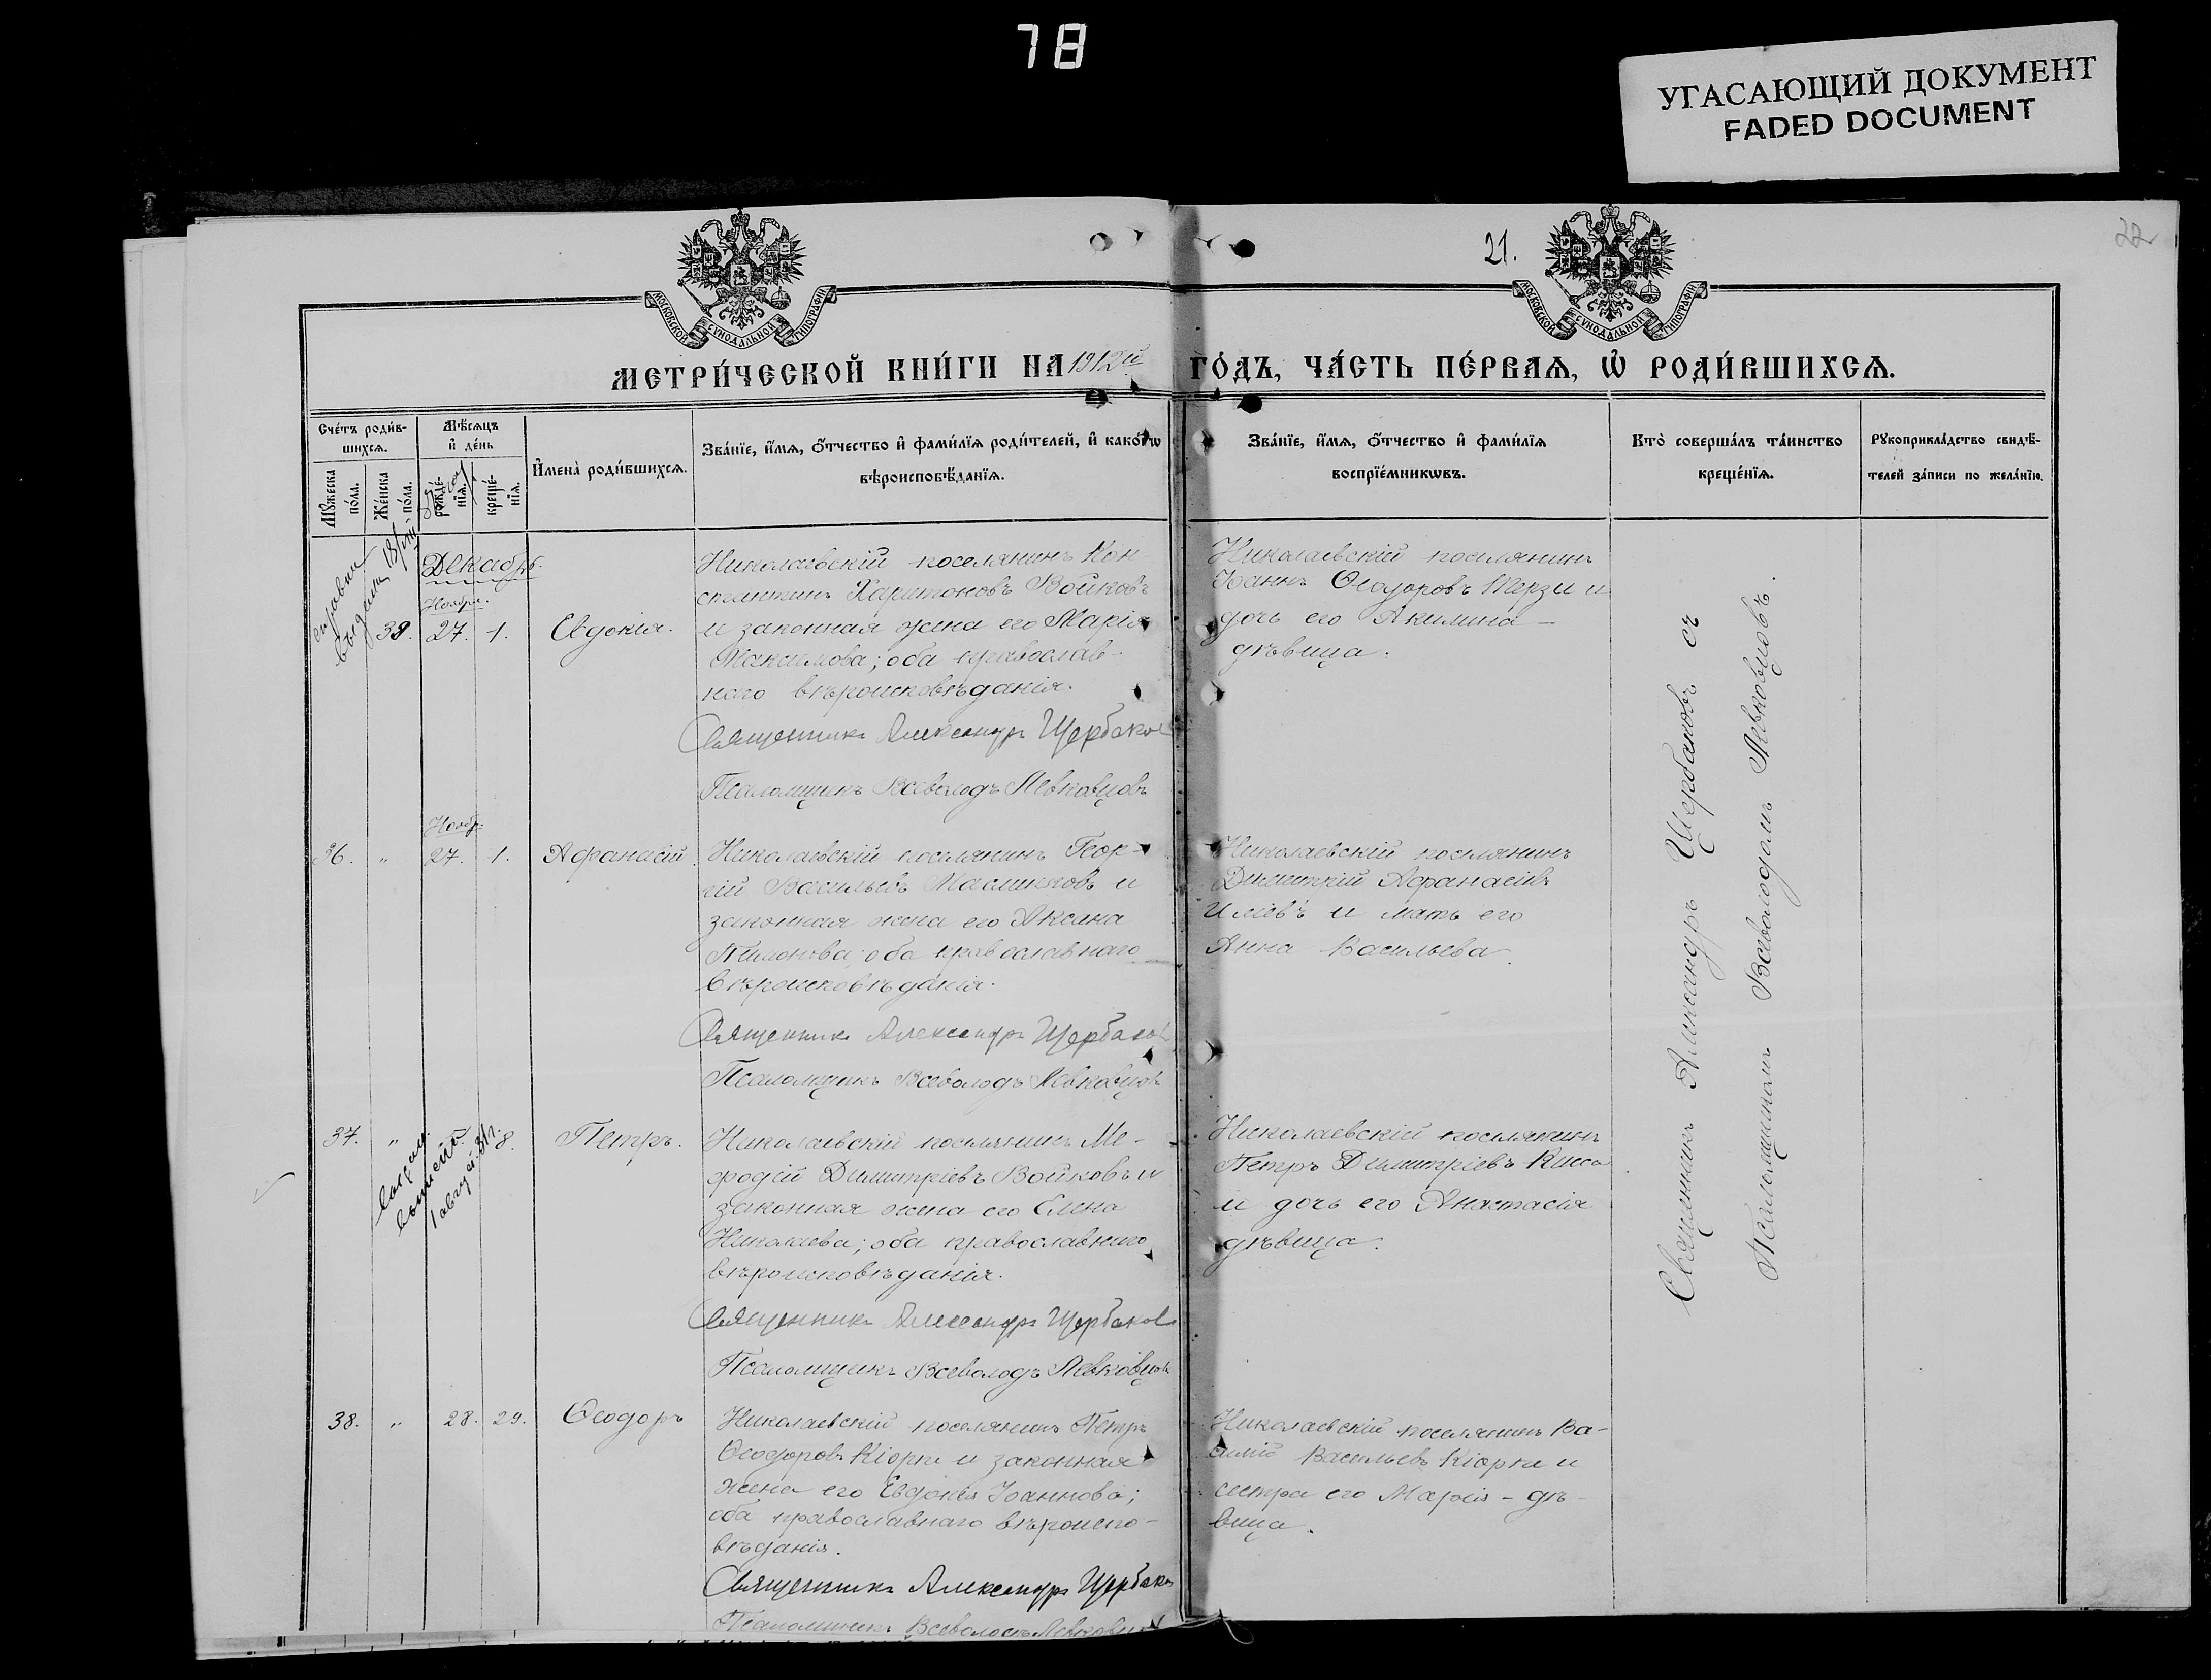 78
УГАСАЮЩИЙ ДОКУМЕНТ
FADED DOCUMENT
22
21.
МОСКОВСКОЙ СѴНОДАЛЬНОЙ ТИПОГРАФІИ
МОСКОВСКОЙ СѴНОДАЛЬНОЙ ТИПОГРАФІИ
МЕТРИ́ЧЕСКОЙ КНИ́ГИ НА 1912й ГО́ДЪ, ЧА́СТЬ ПЕ́РВАЯ, Ѽ РОДИ́ВШИХСЯ.
Сче́тъ роди́в-
шихся.
Мꙋ́жеска по́ла.
Же́нска по́ла.
Мѣ́сяцъ
и҆ де́нь
рожде́-
нїя.
креще́-
нїя.
И҆мена̀ роди́вшихся.
Зва́нїе, и҆́мя, ѻ҆́тчество и҆ фами́лїя роди́телей, и҆ како́гѡ
вѣроисповѣ́данїя.
Зва́нїе, и҆́мя, ѻ҆́тчество и҆ фами́лїя
воспрїе́мникѡвъ.
Кто̀ соверша́лъ та́инство
креще́нїя.
Рꙋкоприкла́дство свидѣ́-
телей за́писи по жела́нїю.
Декабрь.
Ноября.
39. 27. 1. Евдокія.
Николаевскій поселянинъ Кон-
стантинъ Харитоновъ Войковъ
и законная жена его Марія
Максимова; оба православ-
наго вѣроисповѣданія.
Священникъ Александръ Щербаков
Псаломщикъ Всеволодъ Левковцовъ
Николаевскій поселянинъ
Іоаннъ Ѳеодоровъ Терзи и
дочь его Акилина —
дѣвица.
Нояб.
36. „ 27. 1. Афанасій
Николаевскій поселянинъ Геор-
гій Васильевъ Масликовъ и
законная жена его Аксана
оба православнаго
вѣроисповѣданія.
Священникъ Александръ Щербаков
Псаломщикъ Всеволодъ Левковцовъ
Николаевскій поселянинъ
Димитрій Афанасіевъ
Иліевъ и мать его
Анна Васильева.
37. „ 8. Петръ.
Николаевскій поселянинъ Ме-
фодій Димитріевъ Войковъ и
законная жена его Елена
Николаева; оба православнаго
вѣроисповѣданія.
Священникъ Александръ Щербаков
Псаломщикъ Всеволодъ Левковцовъ
Николаевскій поселянинъ
Петръ Димитріевъ Кисса
и дочь его Анастасія
дѣвица.
38. „ 28. 29. Ѳеодоръ
Николаевскій поселянинъ Петръ
Ѳеодоровъ Кіорпе и законная
жена его Евдокія Іоаннова;
оба православнаго вѣроиспо-
вѣданія.
Священникъ Александръ Щербаков
Псаломщикъ Всеволодъ Левковцовъ
Николаевскій поселянинъ Ва-
силій Васильевъ Кіорпе и
сестра его Марія - дѣ-
вица.
Священникъ Александръ Щербаковъ съ
Псаломщикомъ Всеволодомъ Левковцовъ.